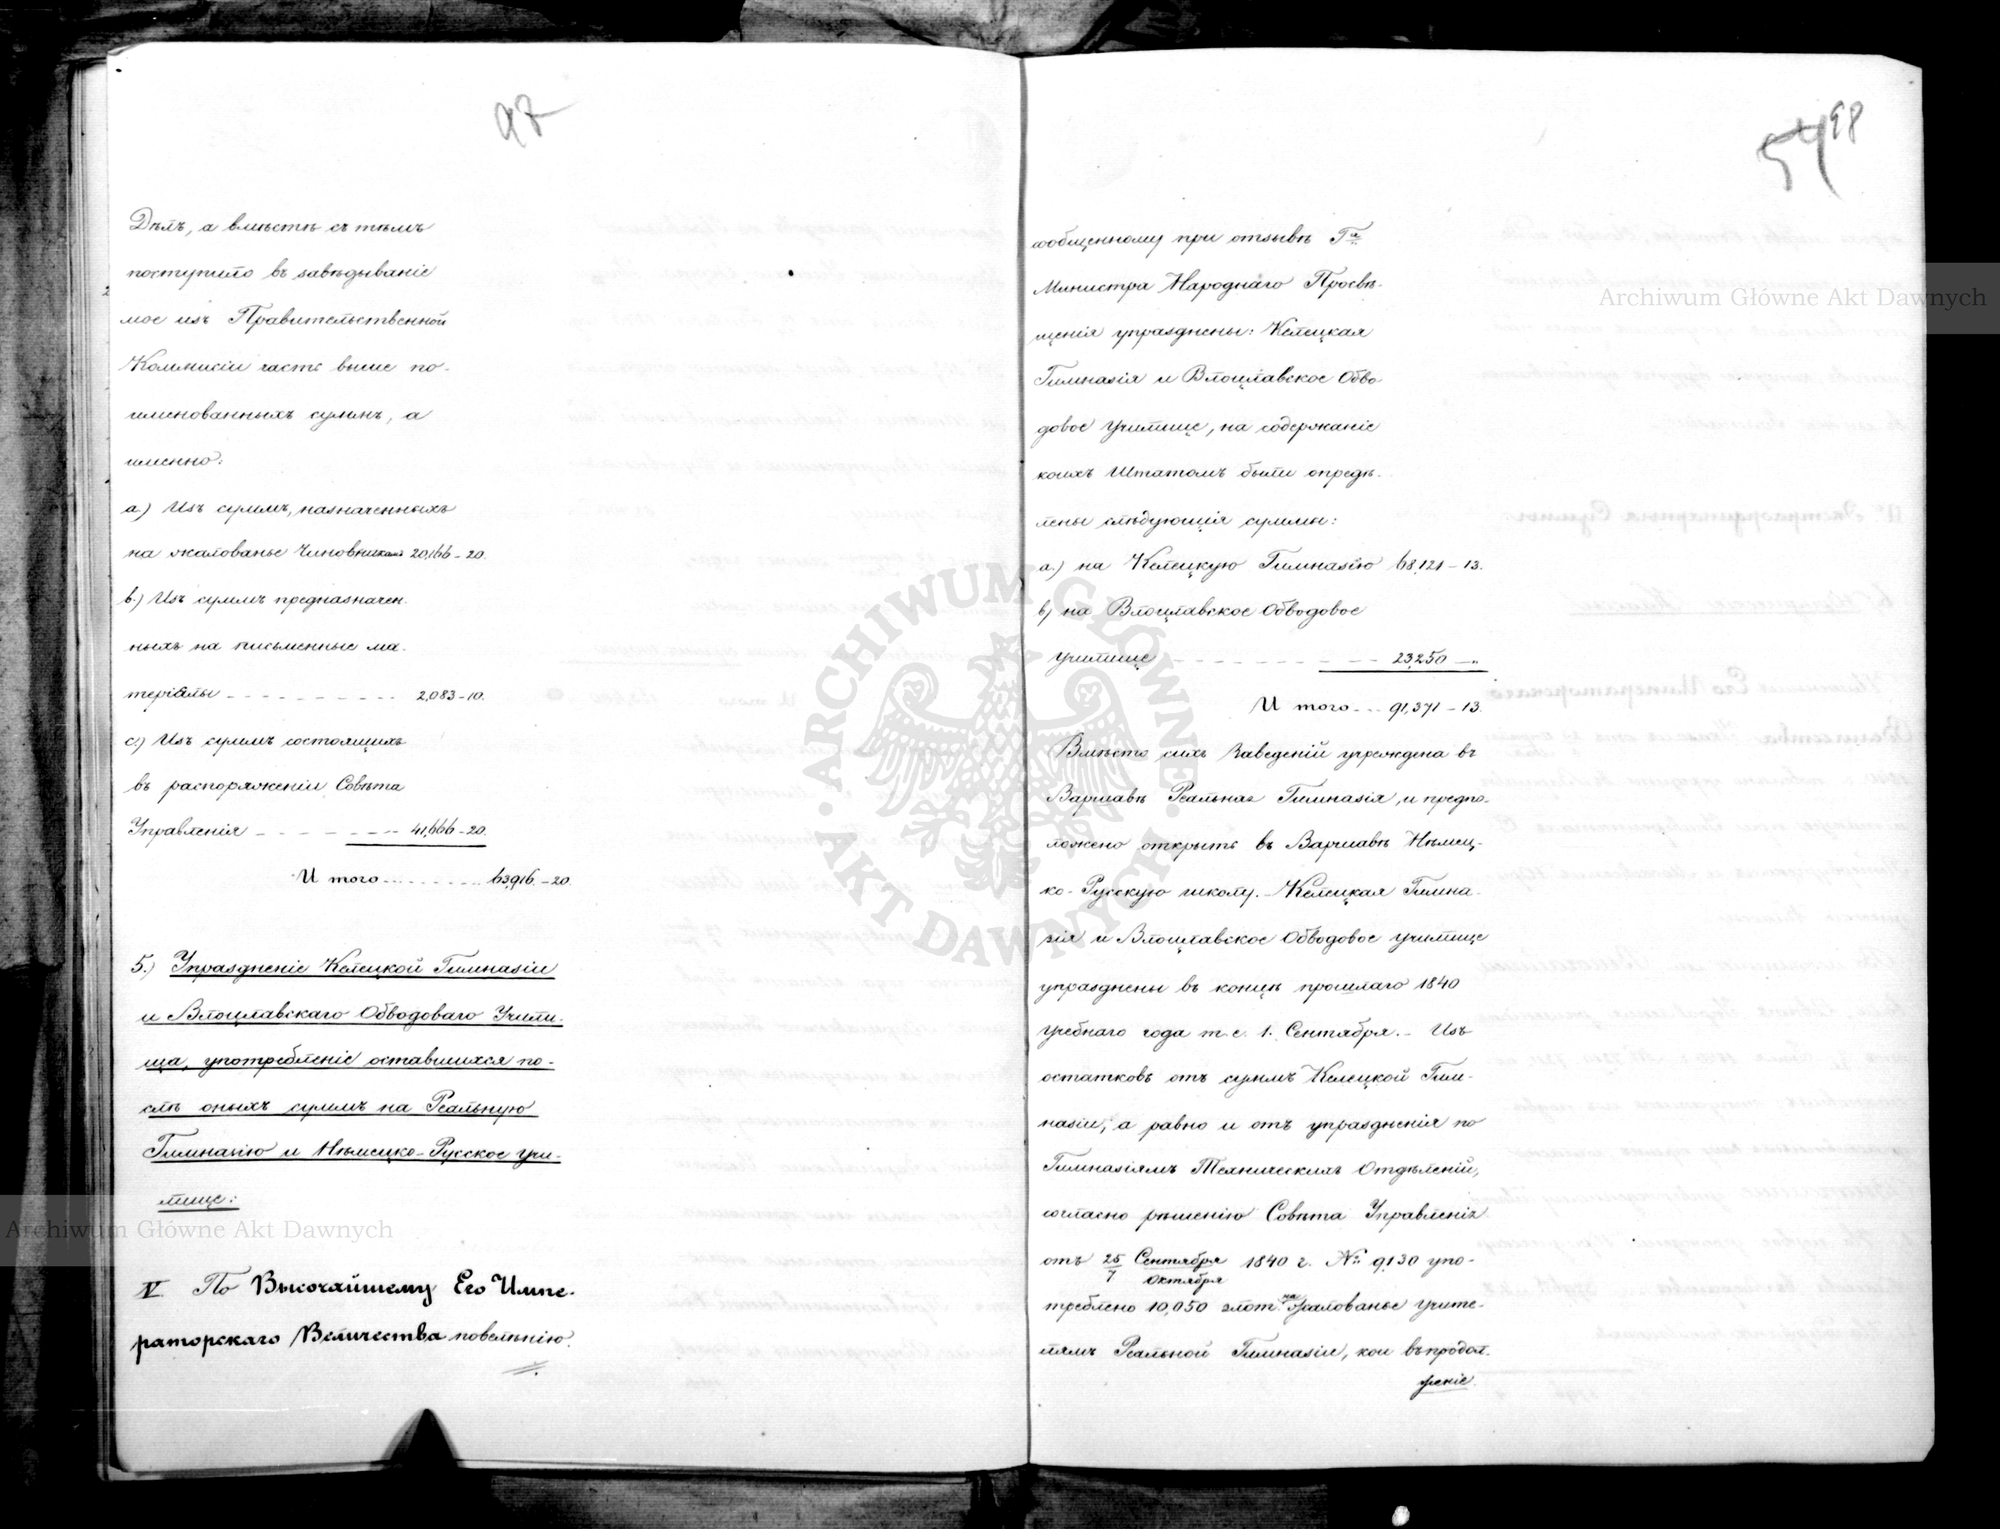 97
Дѣлъ, а вмѣстѣ съ тѣмъ
поступило въ завѣдываніе
мое изъ Правительственной
Коммисіи часть выше по-
именованныхъ суммъ, а
именно:
a) Изъ суммъ, назначенныхъ
на жалованье Чиновникамъ 20,166 - 20.
b.) Изъ суммъ предназначен-
ныхъ на письменные ма-
теріалы - - - - - - - - - - 2,083-10.
c.) Изъ суммъ состоящихъ
въ распоряженіи Совѣта
Управленія - - - - - - - - 41,666-20.
И того - - - - - - - - 63,916-20.
5.) Упраздненіе Келецкой Гимназіи
и Влоцлавскаго Обводоваго Учили-
ща, употребленіе оставшихся по-
слѣ оныхъ суммъ на Реальную
Гимназію и Нѣмецко-Русское учи-
лище:
V По Высочайшему Его Импе-
раторскаго Величества повелѣнію.
54 98
сообщенному при отзывѣ Гна
Министра Народнаго Просвѣ-
щенія упразднены: Келецкая
Гимназія и Влоцлавское Обво-
довое Училище, на содержаніе
коихъ Штатомъ были опредѣ-
лены слѣдующія суммы:
a.) на Келецкую Гимназію 68,121 - 13.
b) на Влоцлавское Обводовое
училище - - - - - - - - - 23,250 - „
И того - - - 91,371 - 13.
Вмѣсто сихъ Заведеній учреждена въ
Варшавѣ Реальная Гимназія, и предпо-
ложено открыть въ Варшавѣ Нѣмец-
ко-Русскую школу. - Келецкая Гимна-
зія и Влоцлавское Обводовое училище
упразднены въ концѣ прошлаго 1840
учебнаго года т. е. 1. Сентября. - Изъ
остатковъ отъ суммъ Келецкой Гим-
назіи, а равно и отъ упраздненія по
Гимназіямъ Техническихъ Отдѣленій,
согласно рѣшенію Совѣта Управленія
отъ 25/7 Сентября/Октября 1840 г. № 9130 упо-
треблено 10,050 злот. на жалованье учите-
лямъ Реальной Гимназіи, кои въ продол-
женіе
Archiwum Główne Akt Dawnych
Archiwum Główne Akt Dawnych
ARCHIWUM GŁÓWNE AKT DAWNYCH